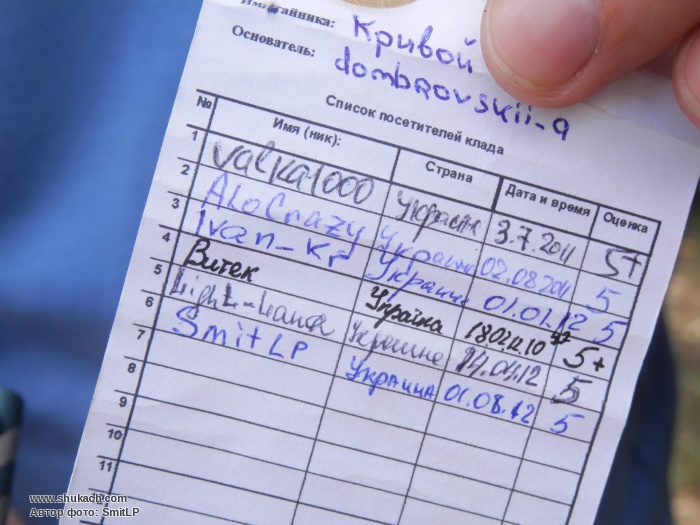 тайника: Кривой
Основатель: dombrovskii-a
Список посетителей клада
№ Имя (ник): Страна Дата и время Оценка
1 valka1000 Украина 3.7.2011 5+
2 ALoCrazy Украина 02.08.2011 5
3 Ivan-Kr Украина 01.01.12 5
4 Витек Україна 5+
5 Украина 14.04.12 5
6 SmitLP Украина 01.08.12 5
7
8
9
10
11
www.shukach.com
Автор фото: SmitLP